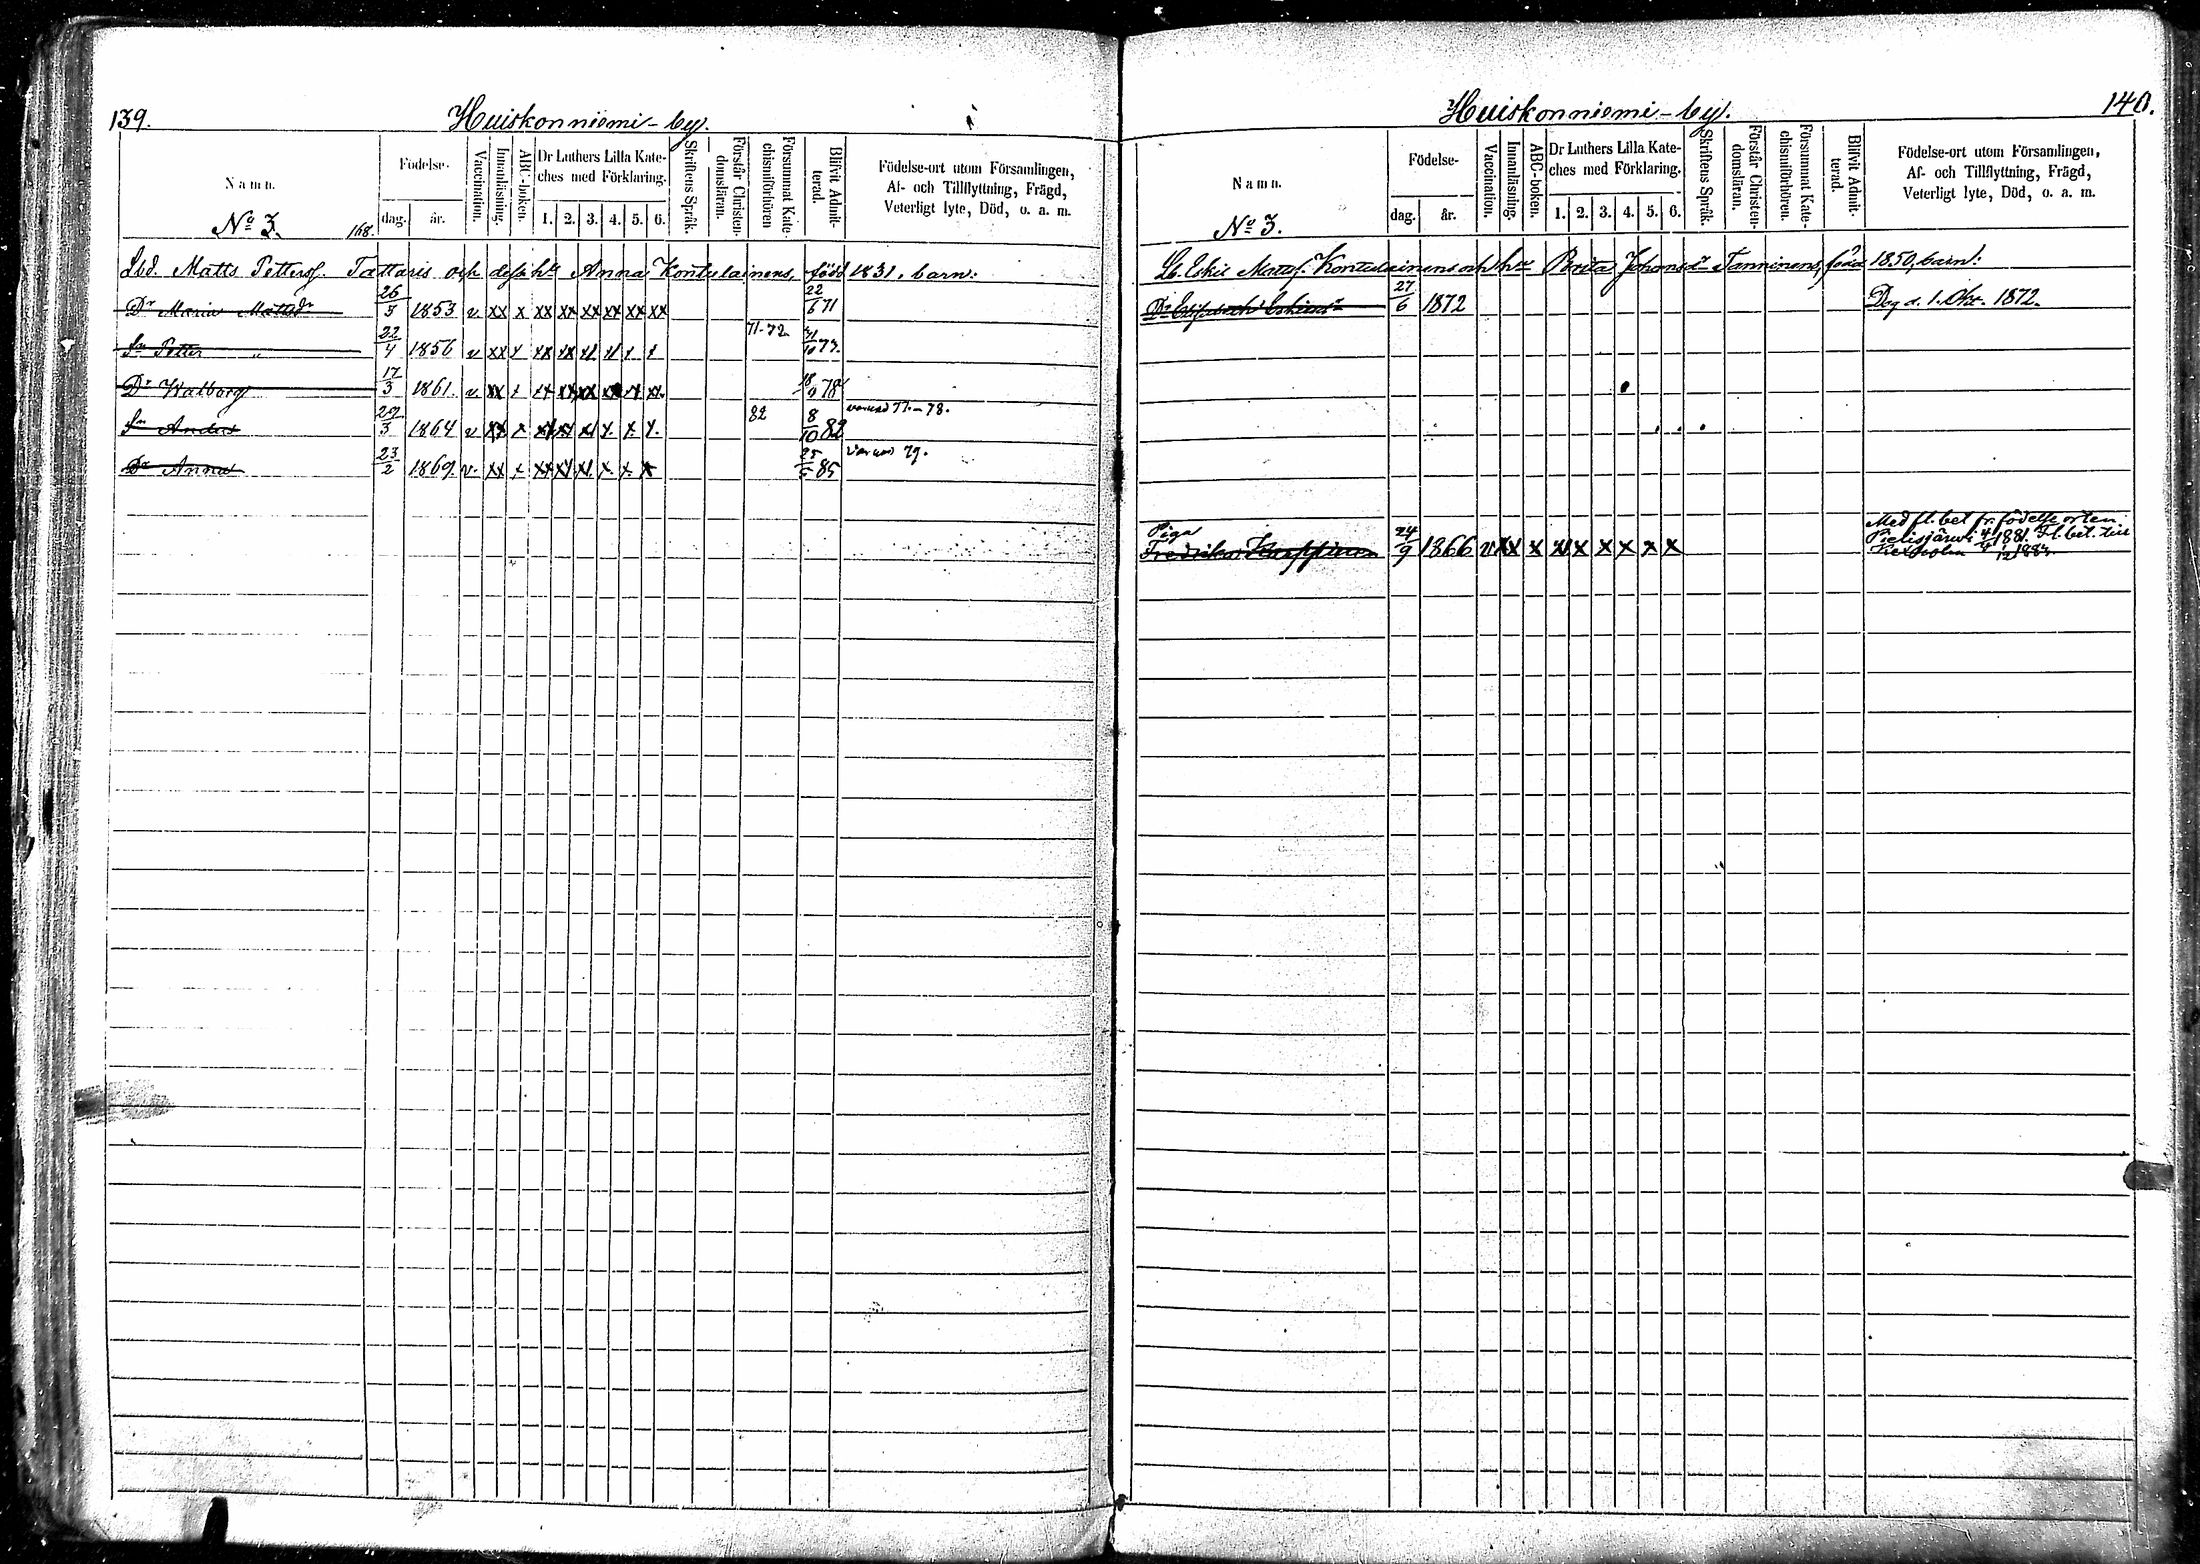 139.
Huiskonniemi - by.
Namn.
Födelse-
dag. år.
Vaccination.
Innanläsning.
ABC-boken.
Dr Luthers Lilla Kate-
ches med Förklaring.
1. 2. 3. 4. 5. 6.
Skriftens Språk.
Förstår Christen-
domsläran.
Försummat Kate-
chismiförhören
Blifvit Admit-
terad.
Födelse-ort utom Församlingen,
Af- och Tillflyttning, Frägd,
Veterligt lyte, Död, o. a. m.
No 3. 168.
Lbd. Matts Petterss. Tattaris och dess hu Anna Kontulainens, född 1831, barn:
Dr Maria Mattsdr 26/5 1853 v. xx x xx xx xx xx xx xx 22/6 71
Sn Petter " 22/4 1856 v xx x xx xx x/ x/ x / 71-72 73.
Dr Walborg 17/3 1861. v. xx x xx xx xx 18/9 78
Sn Anders 29/3 1864 v xx x x/ x/ x/ x. x. x. 82 8/10 82 77.-78.
Dr Anna 23/2 1869. v. xx x xx x/ x/ x. x. x 25/5 85 79.
140.
Huiskonniemi - by.
Namn.
Födelse-
dag. år.
Vaccination.
Innanläsning.
ABC-boken.
Dr Luthers Lilla Kate-
ches med Förklaring.
1. 2. 3. 4. 5. 6.
Skriftens Språk.
Förstår Christen-
domsläran.
Försummat Kate-
chismiförhören.
Blifvit Admit-
terad.
Födelse-ort utom Församlingen,
Af- och Tillflyttning, Frägd,
Veterligt lyte, Död, o. a. m.
No 3.
Lb. Eskil Matss. Kontulainens och hu Brita Johansdr Tanninens, född 1850, barn:
Dr Elisabeth Eskilsdr 27/6 1872 Död d. 1. Okt. 1872.
Piga
Fredrika 24/9 1866 v xx x x/ x x x x x
Med fl. bet fr. födelseorten
Pielisjärvi 1881. Fl. bet. till
Kexholm